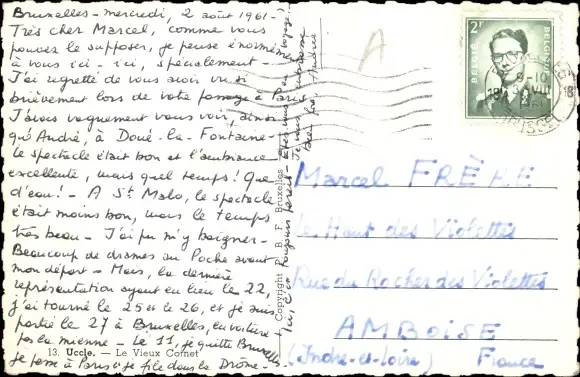 Bruxelles - mercredi, 2 août 1961 -
Très cher Marcel, comme vous
pouvez le supposer, je pense énormément
à vous ici - ici, spécialement -
J'ai regretté de vous avoir vu si
brièvement lors de votre passage à Paris
J'avais vaguement vous voir, ainsi
qu'André, à Doué-la-Fontaine -
le spectacle était bon et l'ambiance
excellente, mais quel temps! Que
d'eau! - A St Malo, le spectacle
était moins bon, mais le temps
très beau - J'ai pu m'y baigner -
Beaucoup de drames au Poche avant
mon départ - Mais, la dernière
représentation ayant eu lieu le 22,
j'ai tourné le 25 et le 26, et je suis
partie le 27 à Bruxelles, en voiture
par la mienne - Le 11, je quitte Bruxelles
je passe à Paris et je file dans la Drôme -
13. Uccle. — Le Vieux Cornet
Copyright P. B. F. Bruxelles
A
2F
BELGIE BELGIQUE
9-10
1961
Marcel FRÈRE
Le Haut des Violettes
Rue du Rocher des Violettes
AMBOISE
(Indre-et-Loire) France